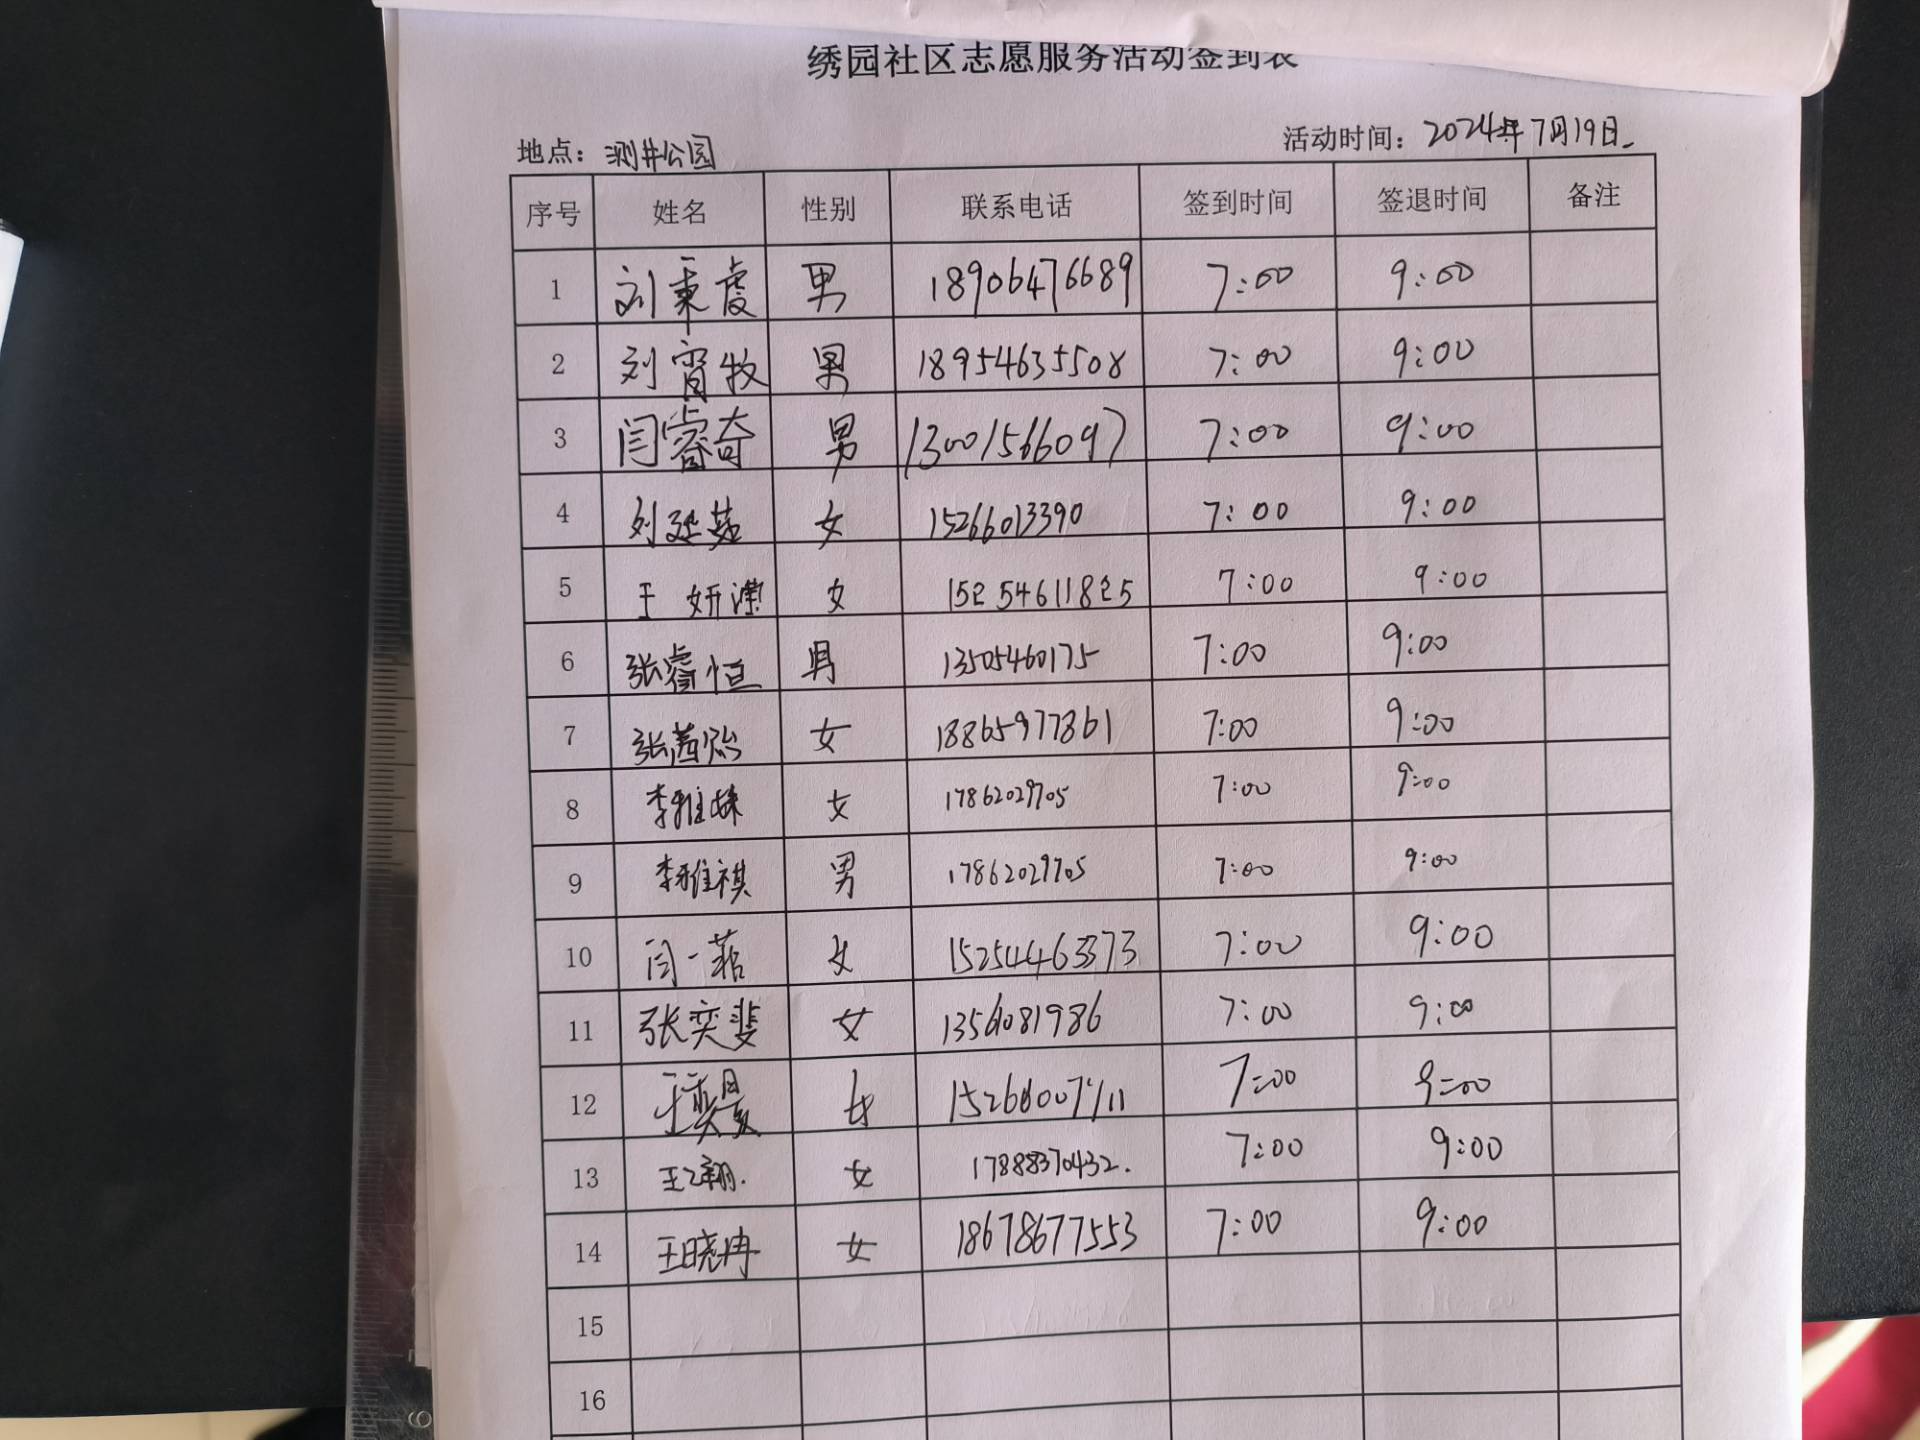 绣园社区志愿服务活动签到表
地点：测井公园 活动时间：2024年7月19日
序号 姓名 性别 联系电话 签到时间 签退时间 备注
1 刘秉虔 男 18906476689 7:00 9:00
2 刘宵牧 男 18954635508 7:00 9:00
3 闫睿奇 男 13001566097 7:00 9:00
4 刘延茹 女 15266013390 7:00 9:00
5 王妍 女 15254611825 7:00 9:00
6 张睿恒 男 13505460175 7:00 9:00
7 张茜贻 女 18865977861 7:00 9:00
8 李雅姝 女 17862029705 7:00 9:00
9 李雅祺 男 17862029705 7:00 9:00
10 闫一菲 女 15254463373 7:00 9:00
11 张奕斐 女 7:00 9:00
12 女 7:00 9:00
13 王翎. 女 17888370432. 7:00 9:00
14 王晓冉 女 18678677553 7:00 9:00
15
16